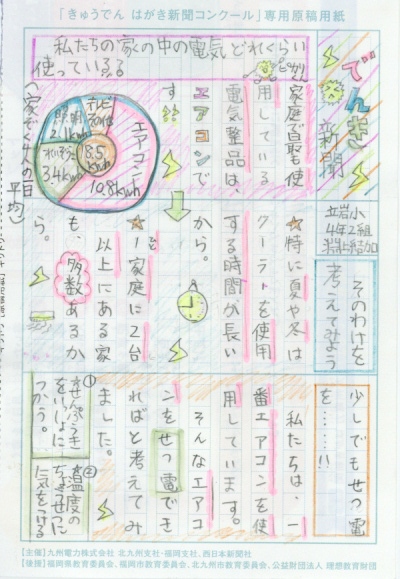 「きゅうでん はがき新聞コンクール」専用原稿用紙
でんき
新聞
立岩小
4年2組
私たちの家の中の電気どれくらい
使っているる
家庭で最も使
用している
電気整品は、
エアコンで
す
エアコン
10.8kwh
れいぞうこ
3.4kwh
照明
2.1kwh
テレビ
18.5
kwh
(家ぞく4人の日
平均)
そのわけを
考えてみよう
☆特に夏や冬は
クーラーを使用
する時間が長い
から。
☆1家庭に2台
以上にある家
も、多数あるか
ら。
少しでもせつ電
を……!!
私たちは、一
番エアコンを使
用しています。
そんなエアコ
ンをせつ電でき
ればと考えてみ
ました。
①
せんぷうき
をいっしょに
つかう。
②
温度の
ちょうせつに
気をつける
【主催】九州電力株式会社 北九州支社・福岡支社、西日本新聞社
【後援】福岡県教育委員会、福岡市教育委員会、北九州市教育委員会、公益財団法人 理想教育財団